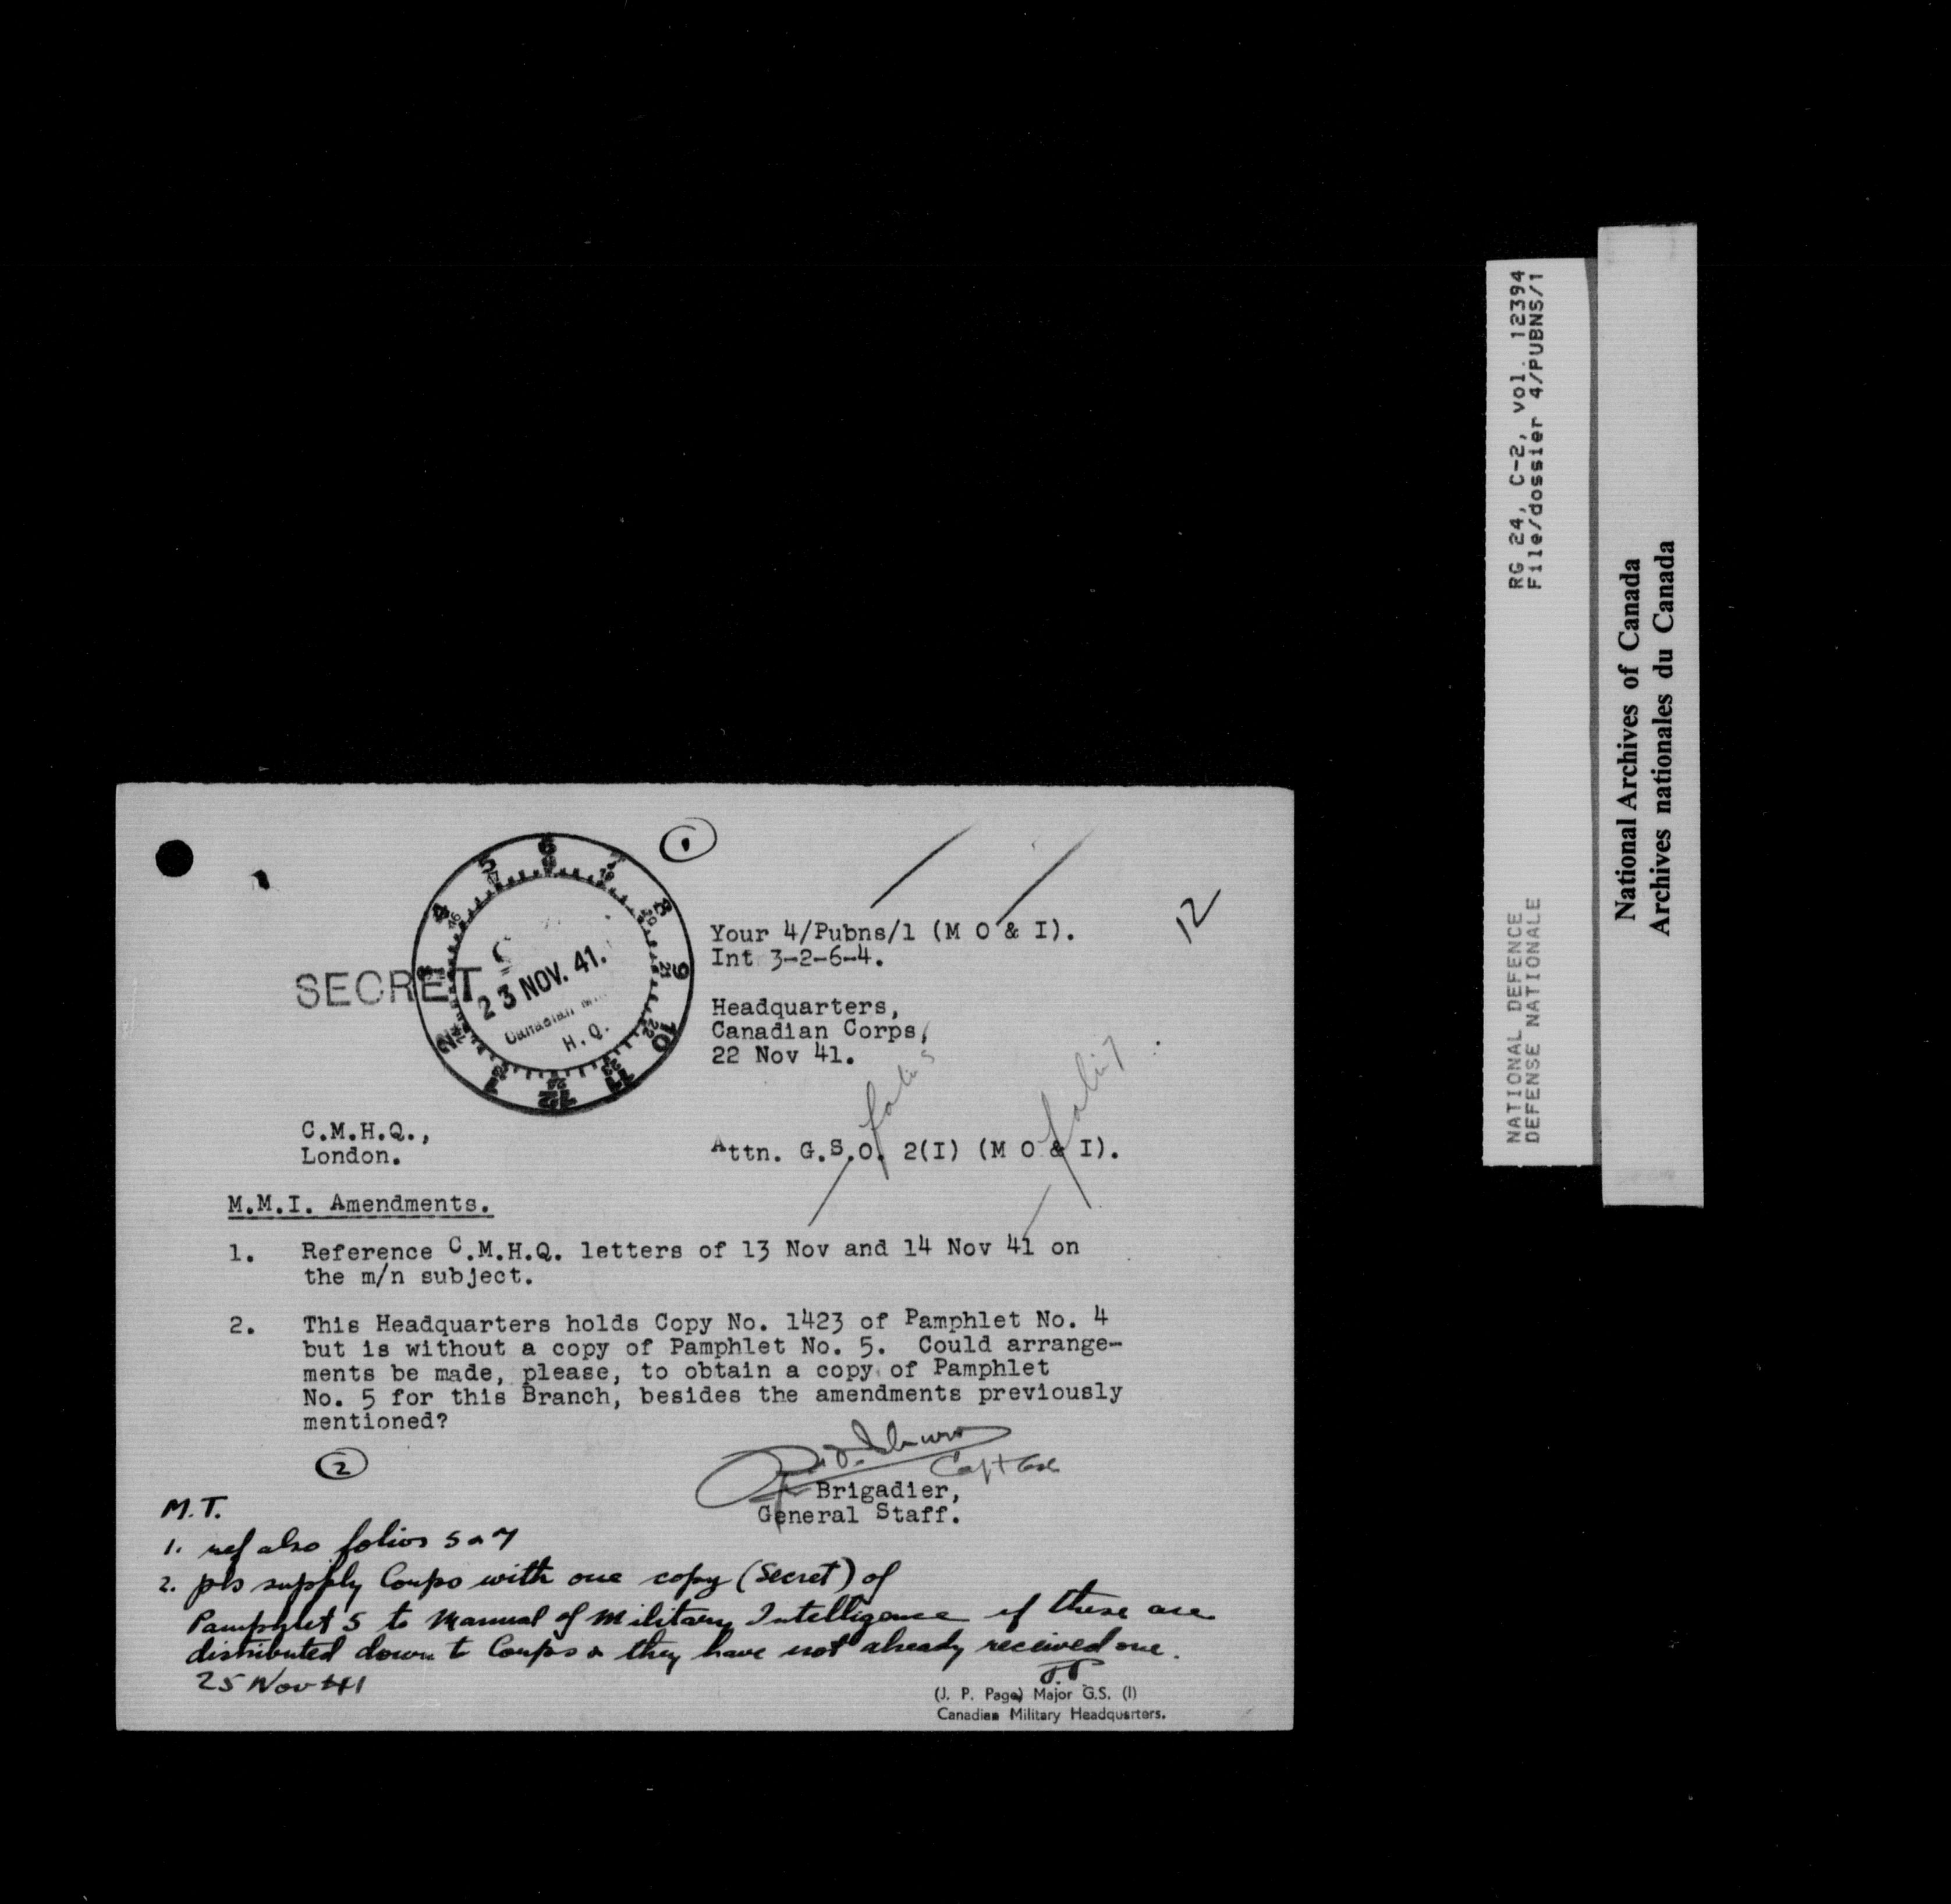 ①
12
SECRET
23 NOV. 41.
Canadian
H.Q.
Your 4/Pubns/1 (M O & I).
Int 3-2-6-4.
Headquarters,
Canadian Corps,
22 Nov 41.
folio 5
folio 7
C.M.H.Q.,
London.
Attn. G.S.O. 2(I) (M O & I).
M.M.I. Amendments.
1. Reference C.M.H.Q. letters of 13 Nov and 14 Nov 41 on
the m/n subject.
2. This Headquarters holds Copy No. 1423 of Pamphlet No. 4
but is without a copy of Pamphlet No. 5. Could arrange-
ments be made, please, to obtain a copy of Pamphlet
No. 5 for this Branch, besides the amendments previously
mentioned?
②
Capt
Brigadier,
General Staff.
M.T.
1. ref also folios 5 & 7
2. pls supply Corps with one copy (Secret) of
Pamphlet 5 to Manual of Military Intelligence if these are
distributed down to Corps & they have not already received one.
25 Nov 41
J.P.
(J. P. Page) Major G.S. (I)
Canadian Military Headquarters.
RG 24, C-2, vol. 12394
File/dossier 4/PUBNS/1
NATIONAL DEFENCE
DEFENSE NATIONALE
National Archives of Canada
Archives nationales du Canada